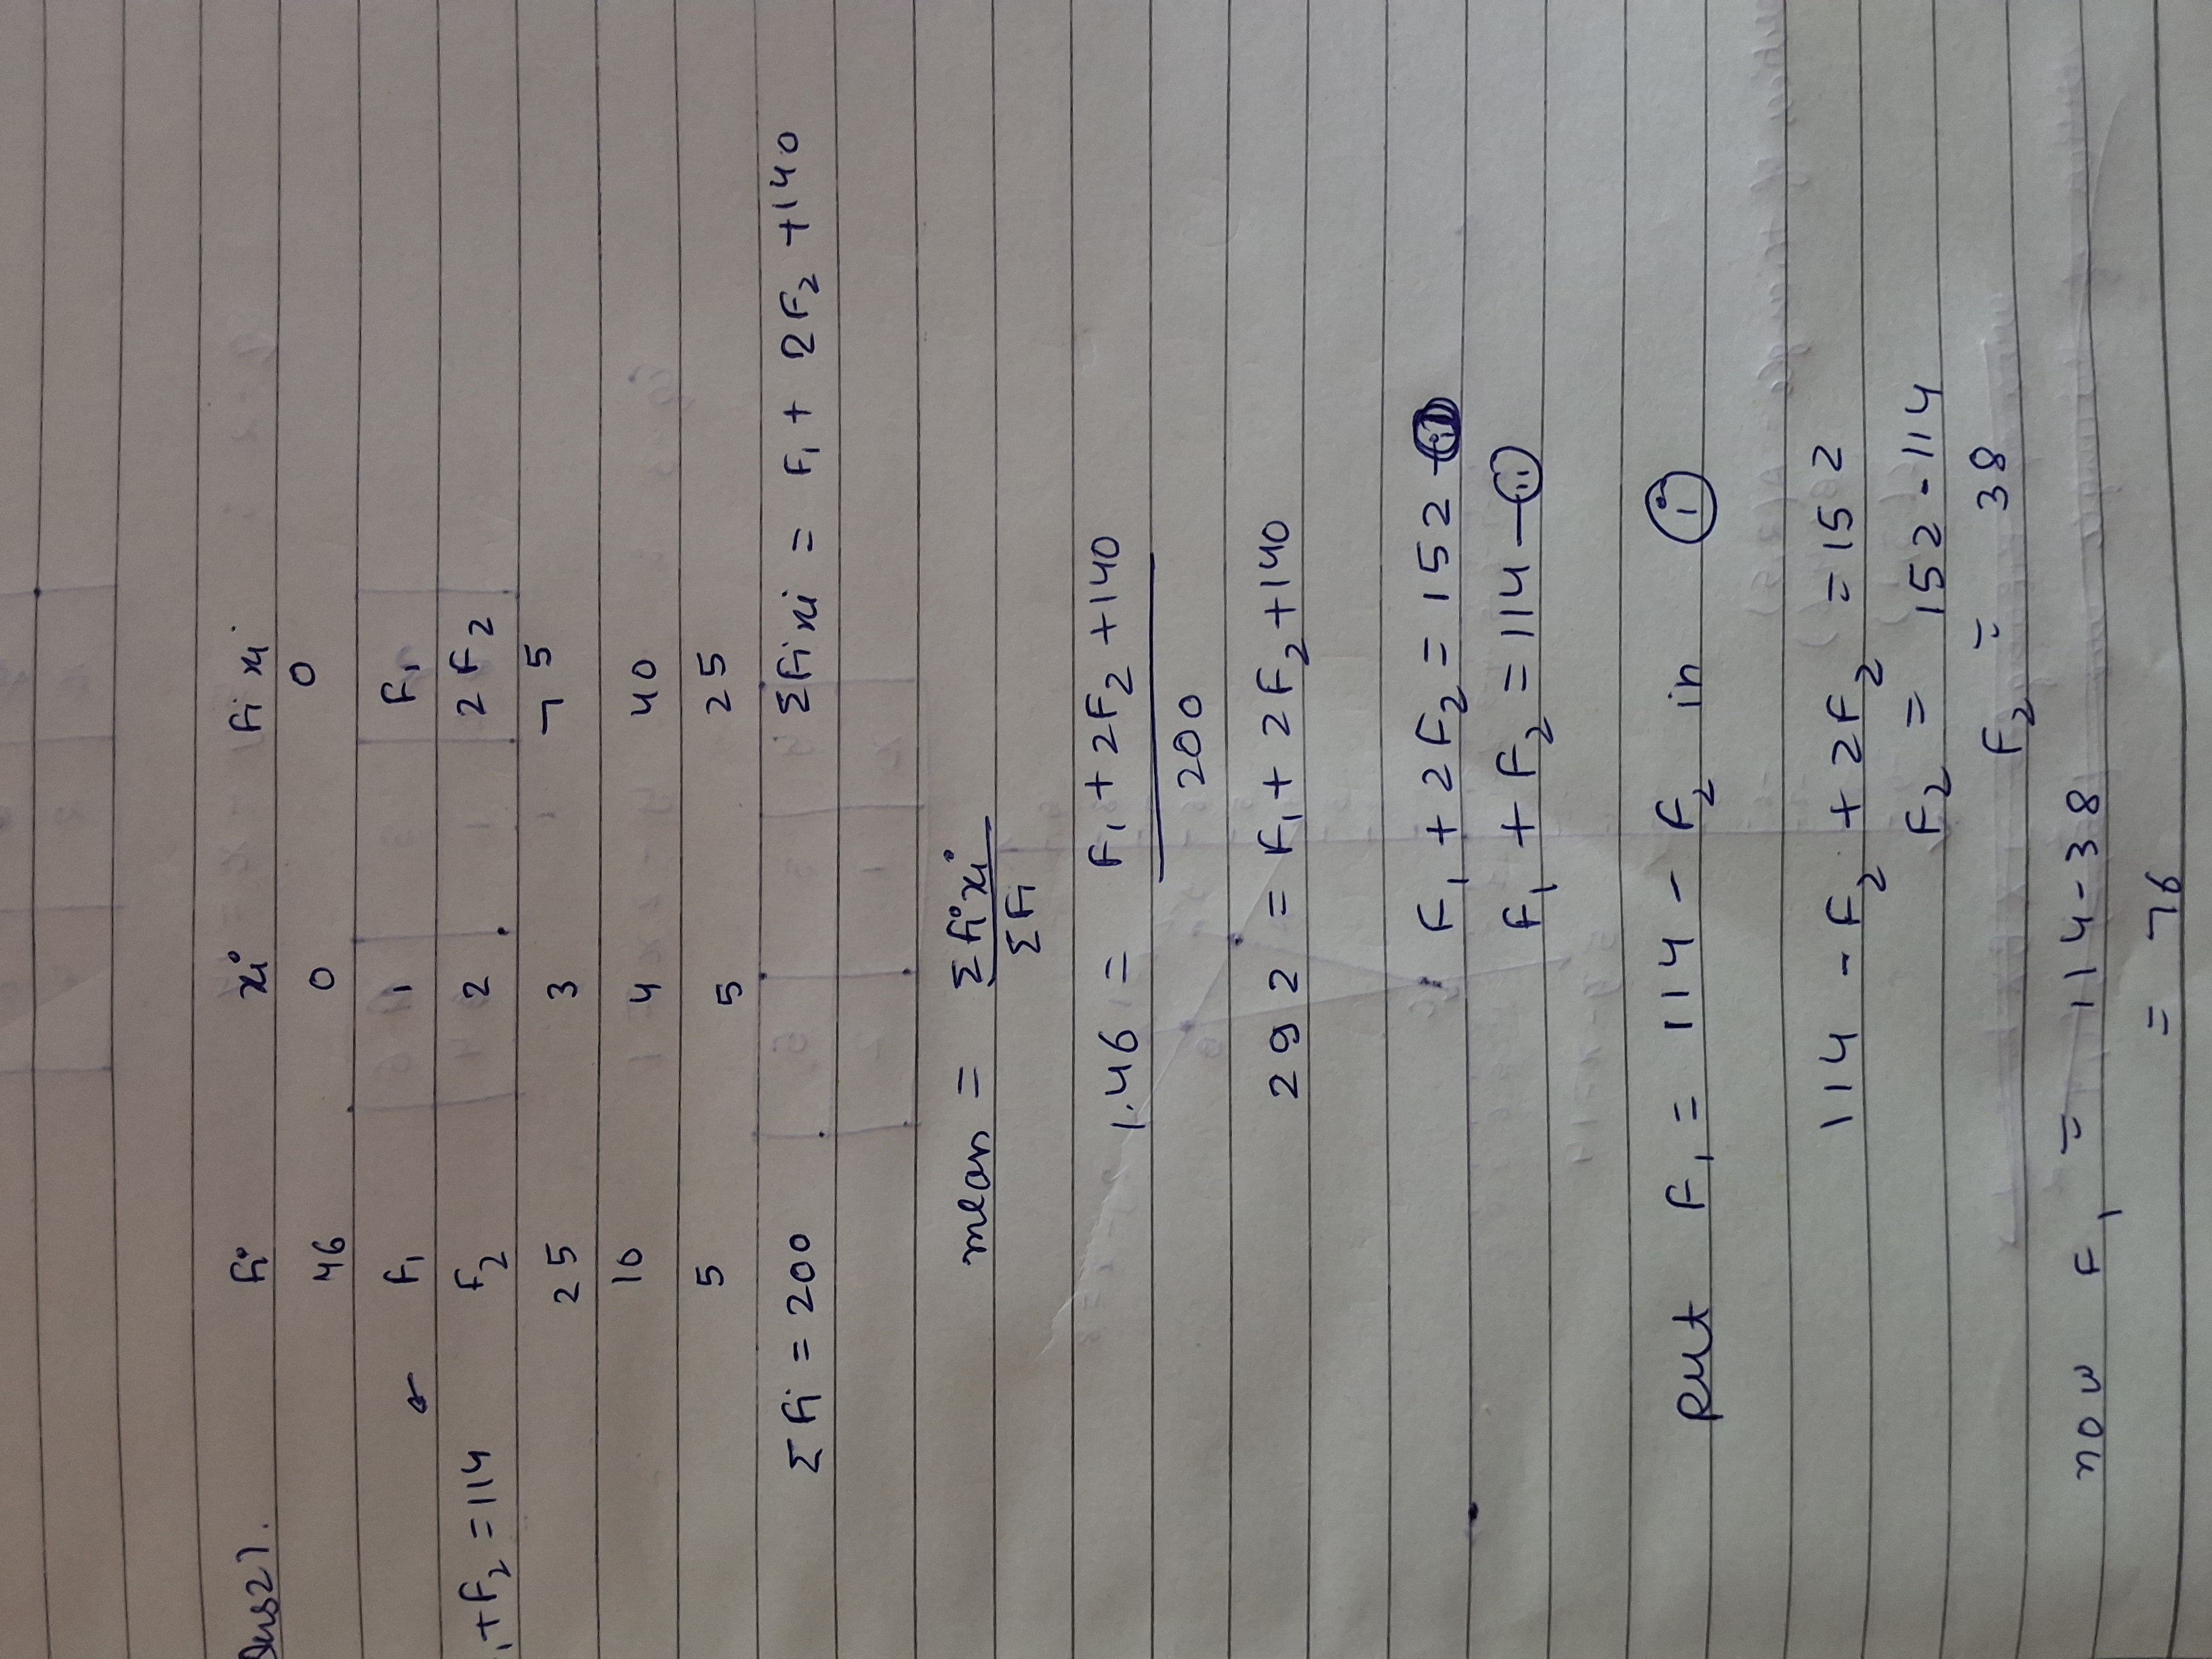 Ans21.
fi xi fi xi
46 0 0
F₁ 1 F₁
₁+F₂ = 114 F₂ 2 2F₂
25 3 75
10 4 40
5 5 25
Σfi = 200 Σfixi = F₁ + 2F₂ +140
mean = Σfixi
Σfi
1.46 = F₁+2F₂+140
200
292 = F₁+2F₂+140
F₁+2F₂ = 152 - (i)
F₁+F₂ = 114 - (ii)
Put F₁ = 114 - F₂ in (i)
114 - F₂ + 2F₂ = 152
F₂ = 152 - 114
F₂ = 38
now F₁ = 114-38
= 76